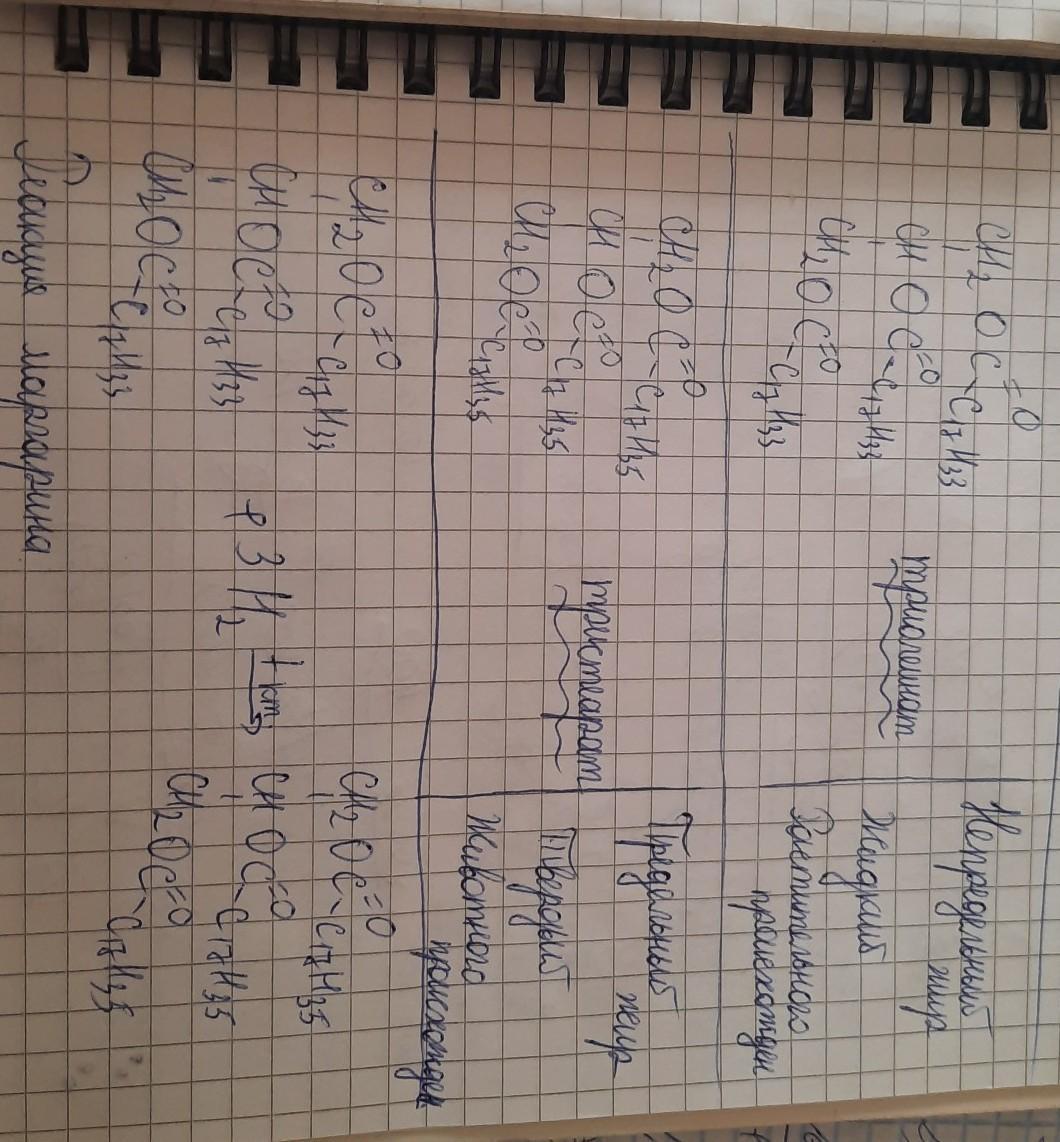 CH2 OC=O-C17H33
CH OC=O-C17H33
CH2OC=O-C17H33
триолеинат
Непредельный
жир
Жидкий
Растительного
происхожден
CH2OC=O-C17H35
CH OC=O-C17H35
CH2OC=O-C17H35
тристеарат
Предельный
жир
Твердый
Животного
происхожден
CH2OC=O-C17H33
CH OC=O-C17H33 + 3H2 t кт →
CH2OC=O-C17H33
CH2OC=O-C17H35
CH OC=O-C17H35
CH2OC=O-C17H35
Реакция маргарина